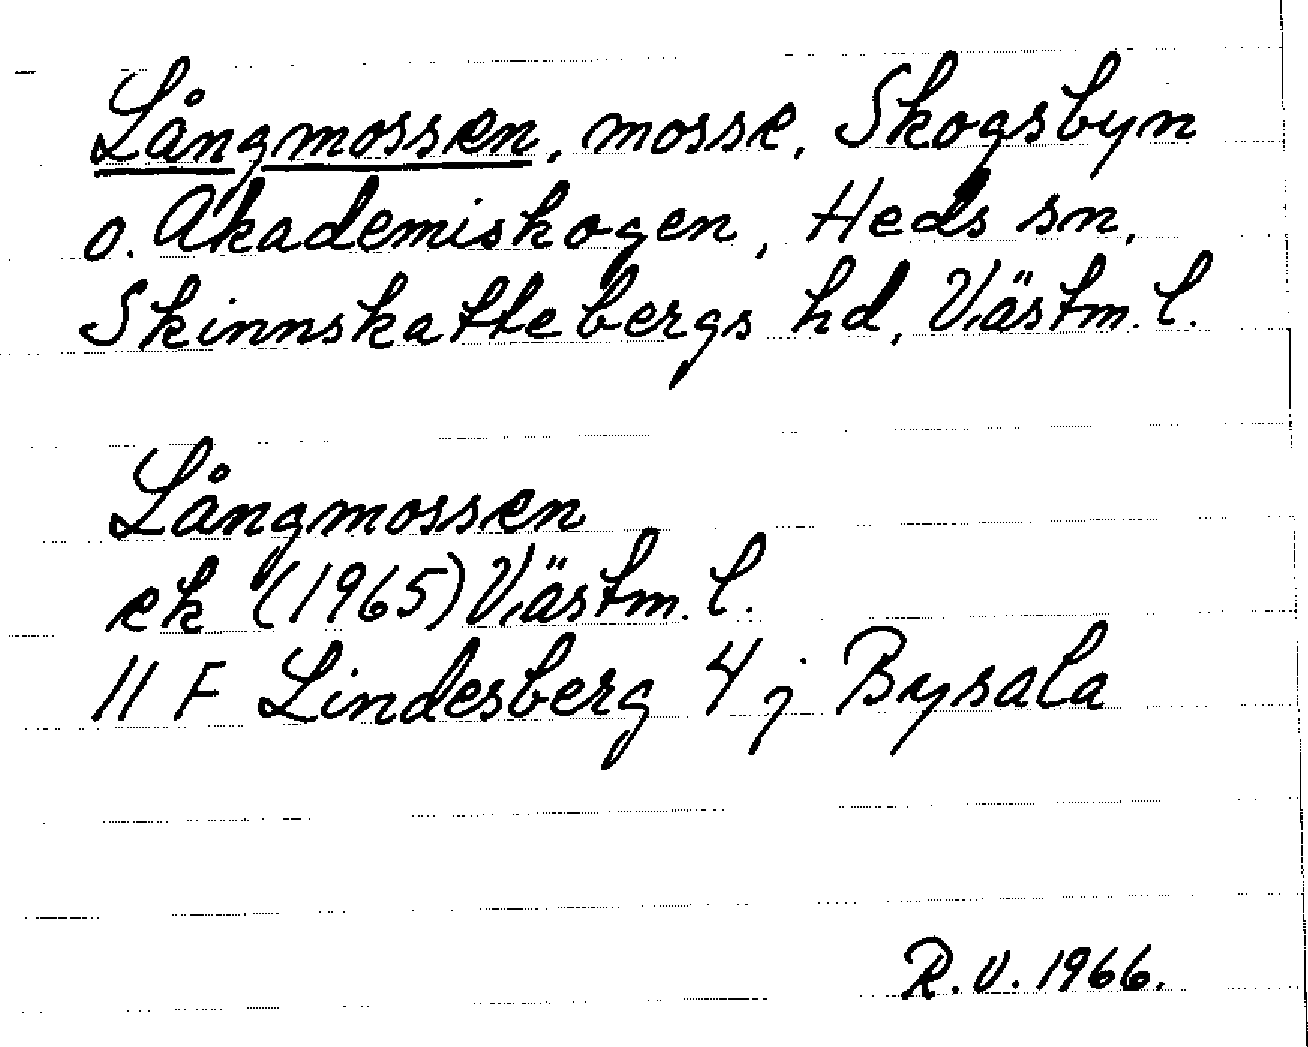 Långmossen, mosse, Skogsbyn
o. Akademiskogen, Heds sn,
Skinnskattebergs hd, Västm. l.
Långmossen
ek (1965) Västm. l.
11 F Lindesberg 4 j Bysala
R.V. 1966.